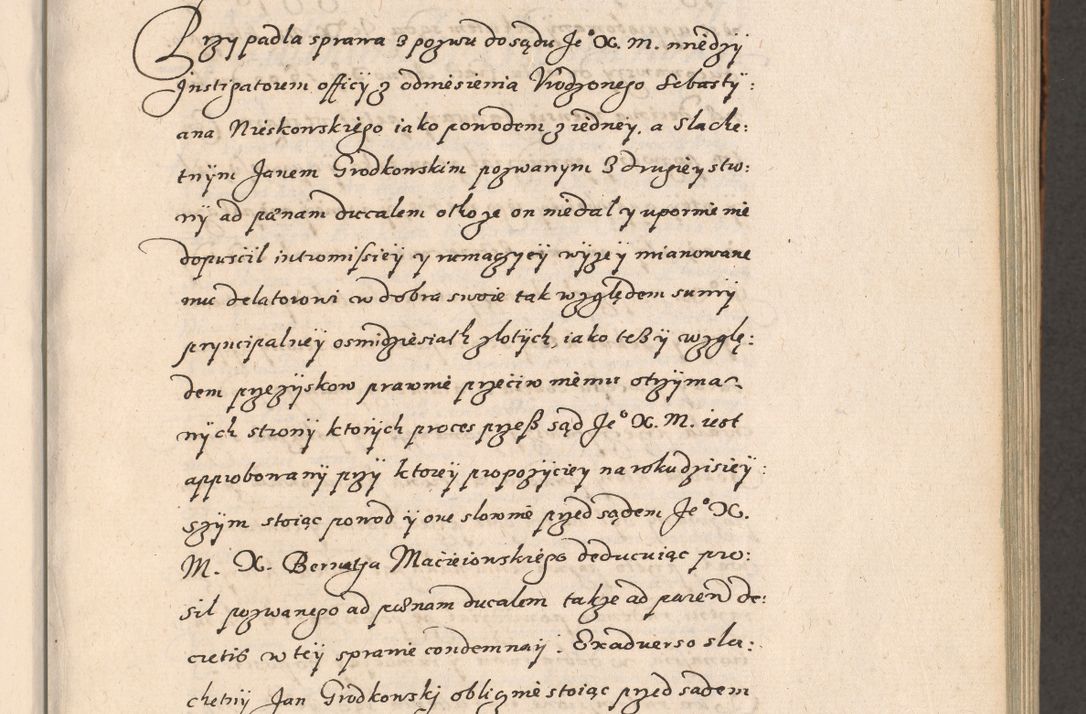 Przypadla sprawa z pozwu do sądu Je° X. M. miedzÿ
Instigatorem officÿ z odniesienia Vrodzonego Sebastÿ:
ana Nieskowskiego iako powodem z iedneÿ, a slache:
tnÿm Janem Grodkowskim pozwanym z drugieÿ stro:
nÿ ad pœnam ducalem oto ze on niedal y upornie nie
dopuscil intromissieÿ y rumacÿeÿ wÿzeÿ mianowane
mu delatorowi w dobra swoie tak względem summÿ
prÿncipalneÿ osmidziesiath zlotÿch, iako tesz ÿ wzglę:
dem przezÿskow prawnie przeciw niemu otrzÿma
nÿch stronÿ ktorÿch proces przesz sąd Je° X. M. iest
approbowanÿ przÿ ktoreÿ propozÿcieÿ na roku dzisieÿ:
szÿm stoiąc powod ÿ one slownie przed sądem Je° X.
M. X. Bernatha Macieiowskiego deducuiąc pro:
sil pozwanego ad pœnam ducalem takze ad paren de:
cretis w teÿ sprawie condemnaÿ. Exaduerso sla:
chetnÿ Jan Grodkowskj oblicznie stoiąc przed sadem